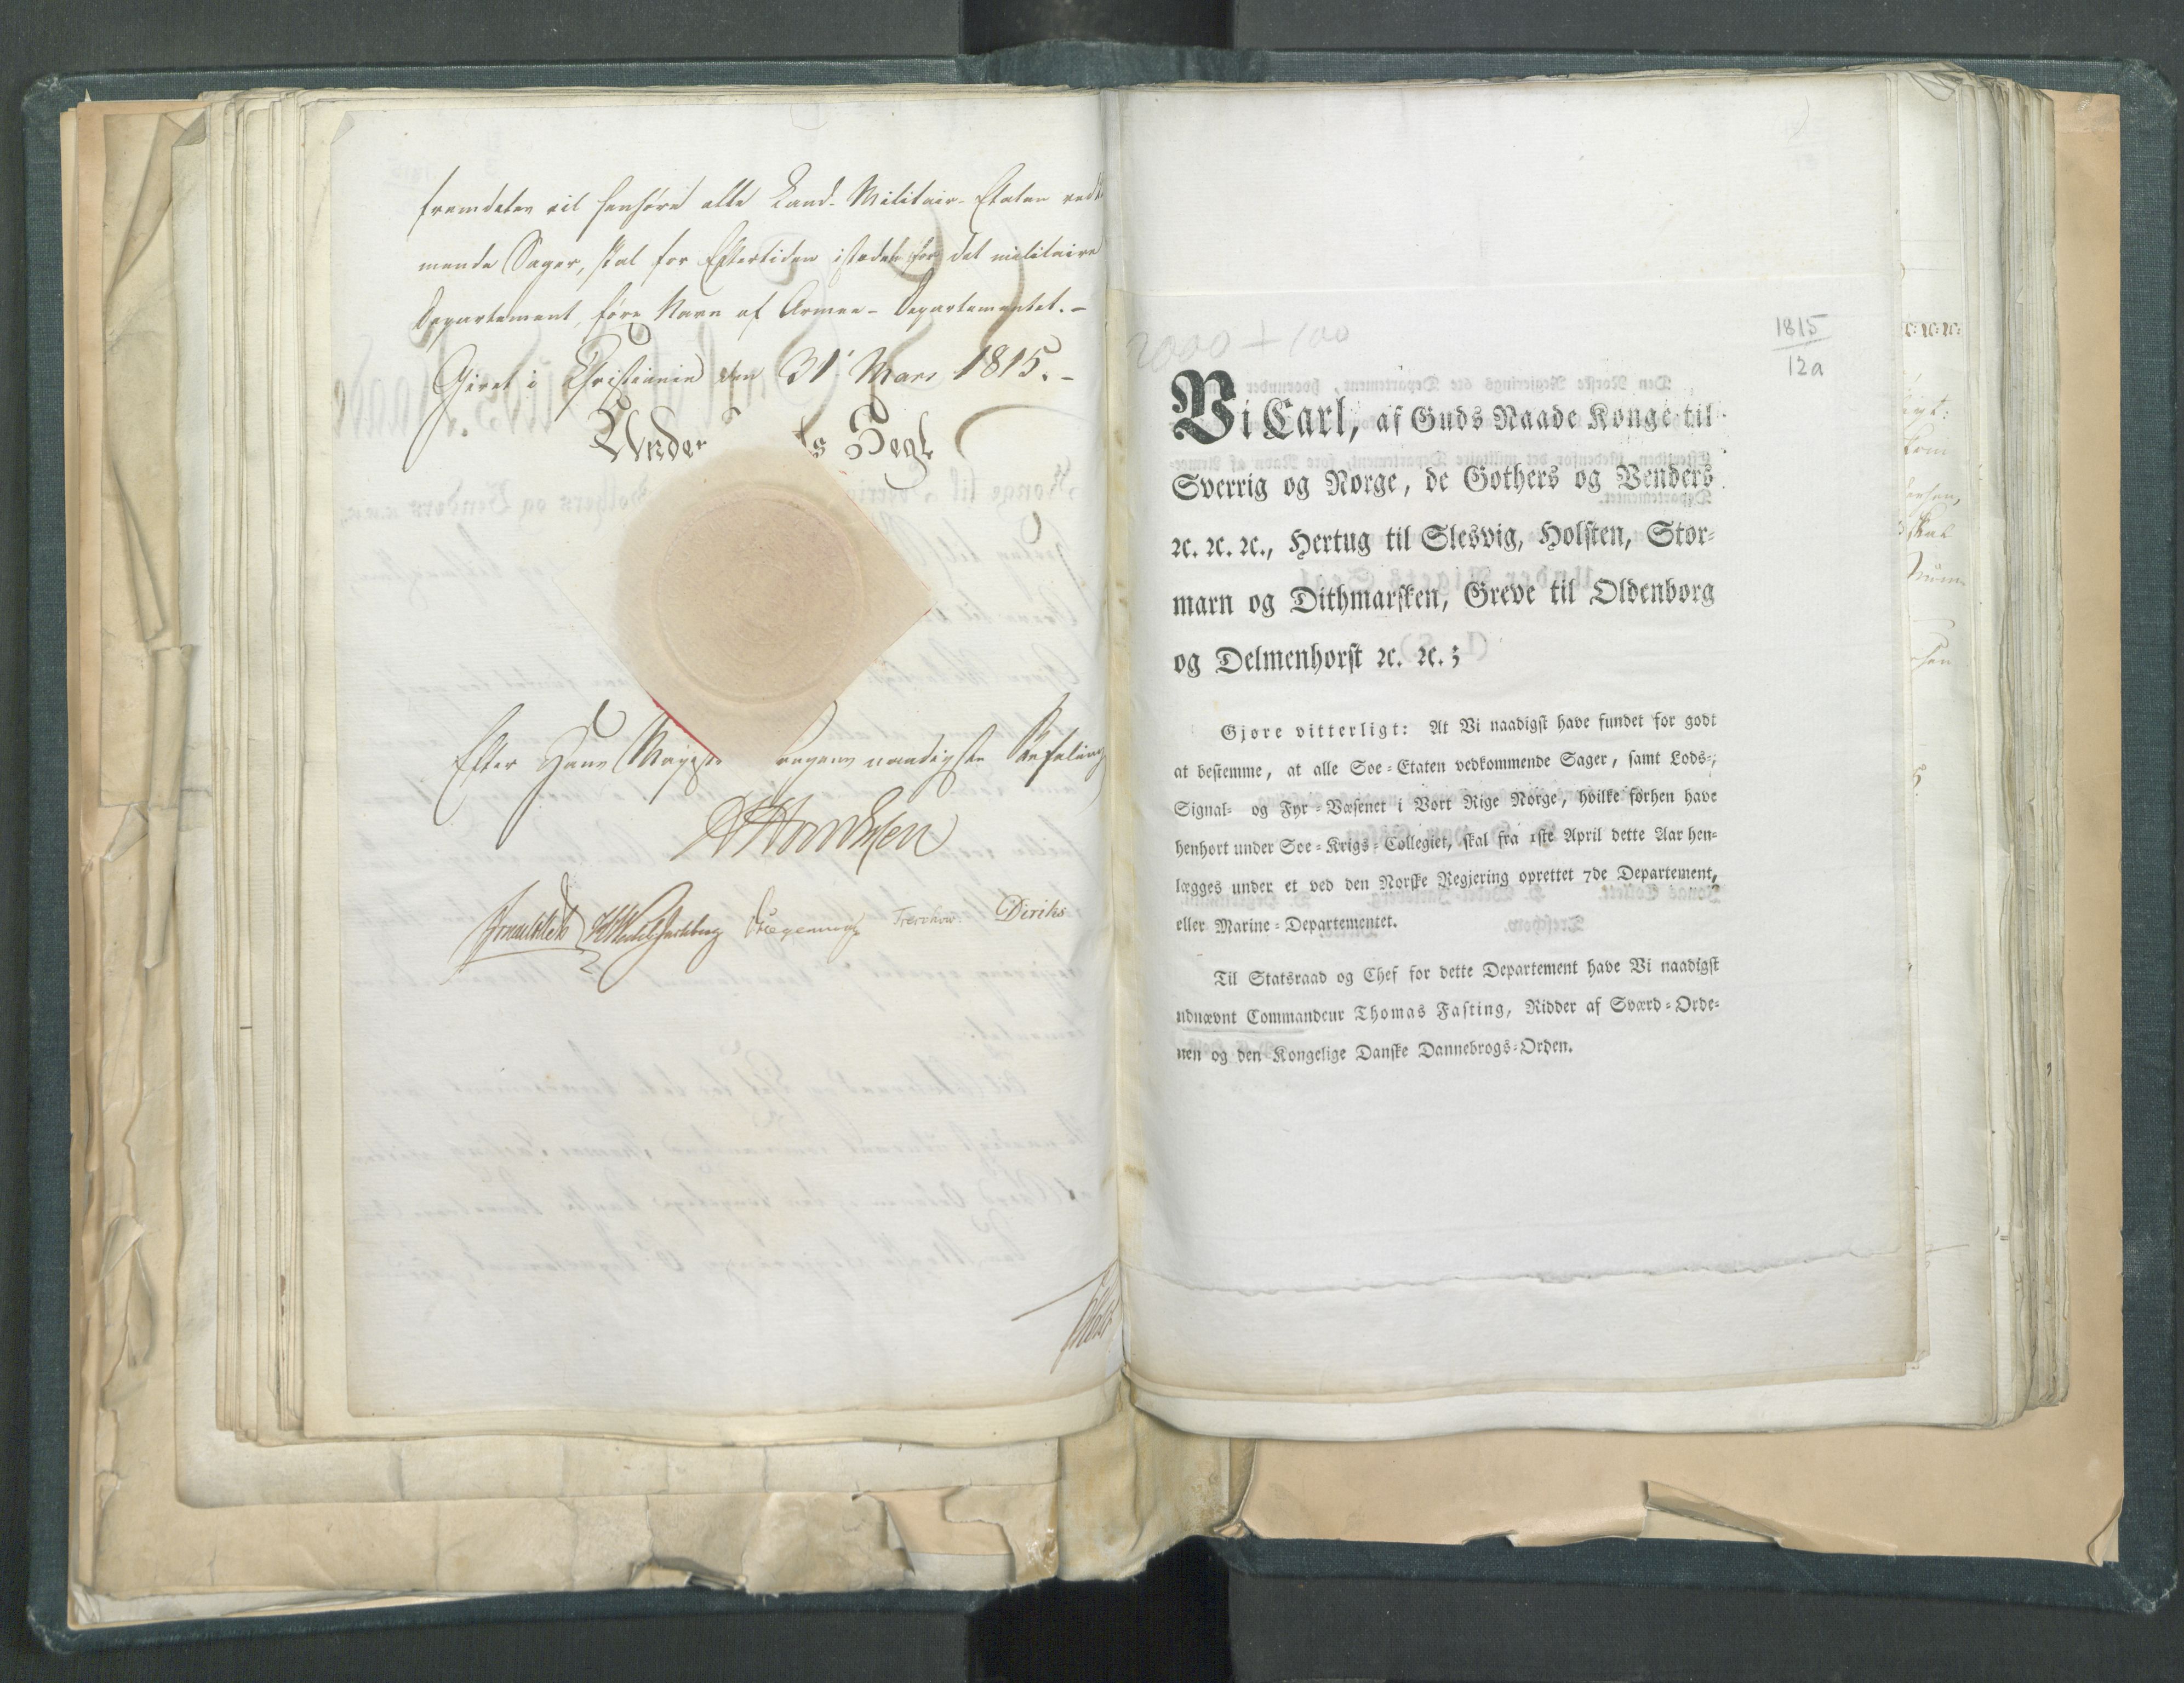 fremdeles vil henhøre alle Land-Militair-Etaten vedk
mende Sager, skal for Eftertiden istedetfor det militaire
Departement, føre Navn af Armee-Departementet.-
Givet i Christiania den 31' Mars 1815.-
Under s Segl
Efter Hans Majestæ ongens naadigste Befaling
Diriks
2000 + 100
1815
12a
Vi Carl, af Guds Naade Konge til
Sverrig og Norge, de Gothers og Venders
ꝛc. ꝛc. ꝛc., Hertug til Slesvig, Holsten, Stor-
marn og Dithmarsken, Greve til Oldenborg
og Delmenhorst ꝛc. ꝛc.;
Gjøre vitterligt: At Vi naadigst have fundet for godt
at bestemme, at alle Søe-Etaten vedkommende Sager, samt Lods-,
Signal- og Fyr-Væsenet i Vort Rige Norge, hvilke forhen have
henhørt under Søe-Krigs-Collegiet, skal fra 1ste April dette Aar hen-
lægges under et ved den Norske Regjering oprettet 7de Departement,
eller Marine-Departementet.
Til Statsraad og Chef for dette Departement have Vi naadigst
udnævnt Commandeur Thomas Fasting, Ridder af Sværd-Orde-
nen og den Kongelige Danske Dannebrogs-Orden.